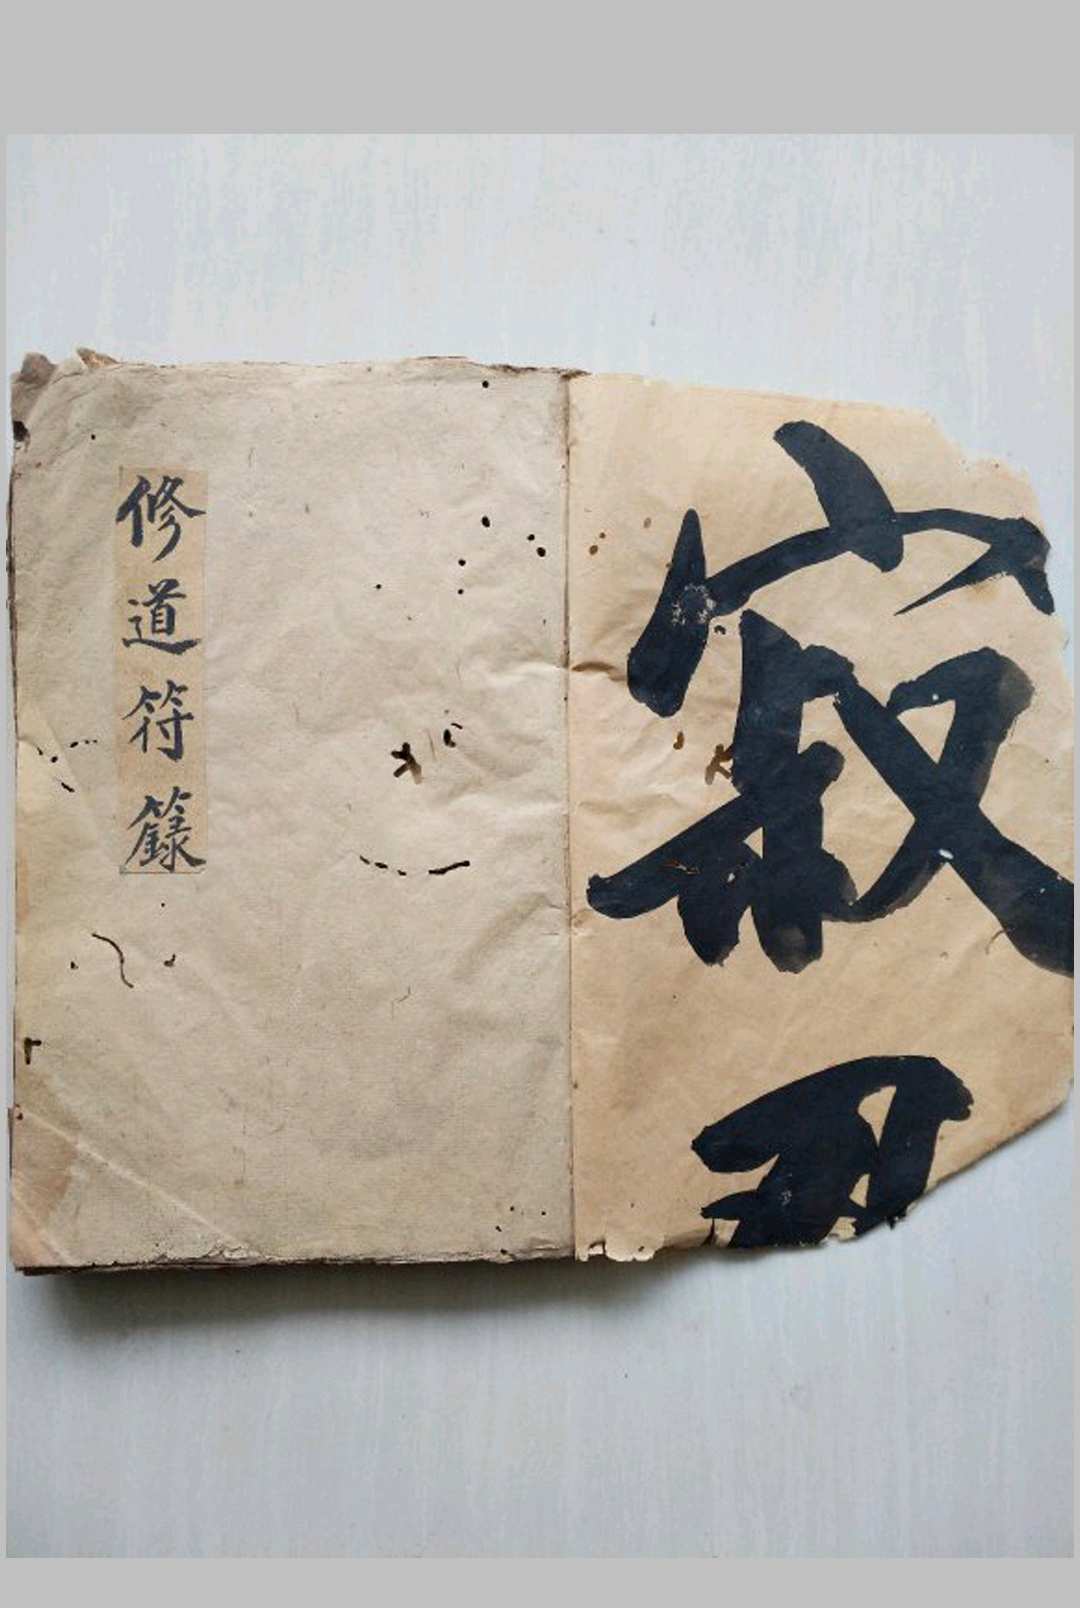 寂
修道符籙